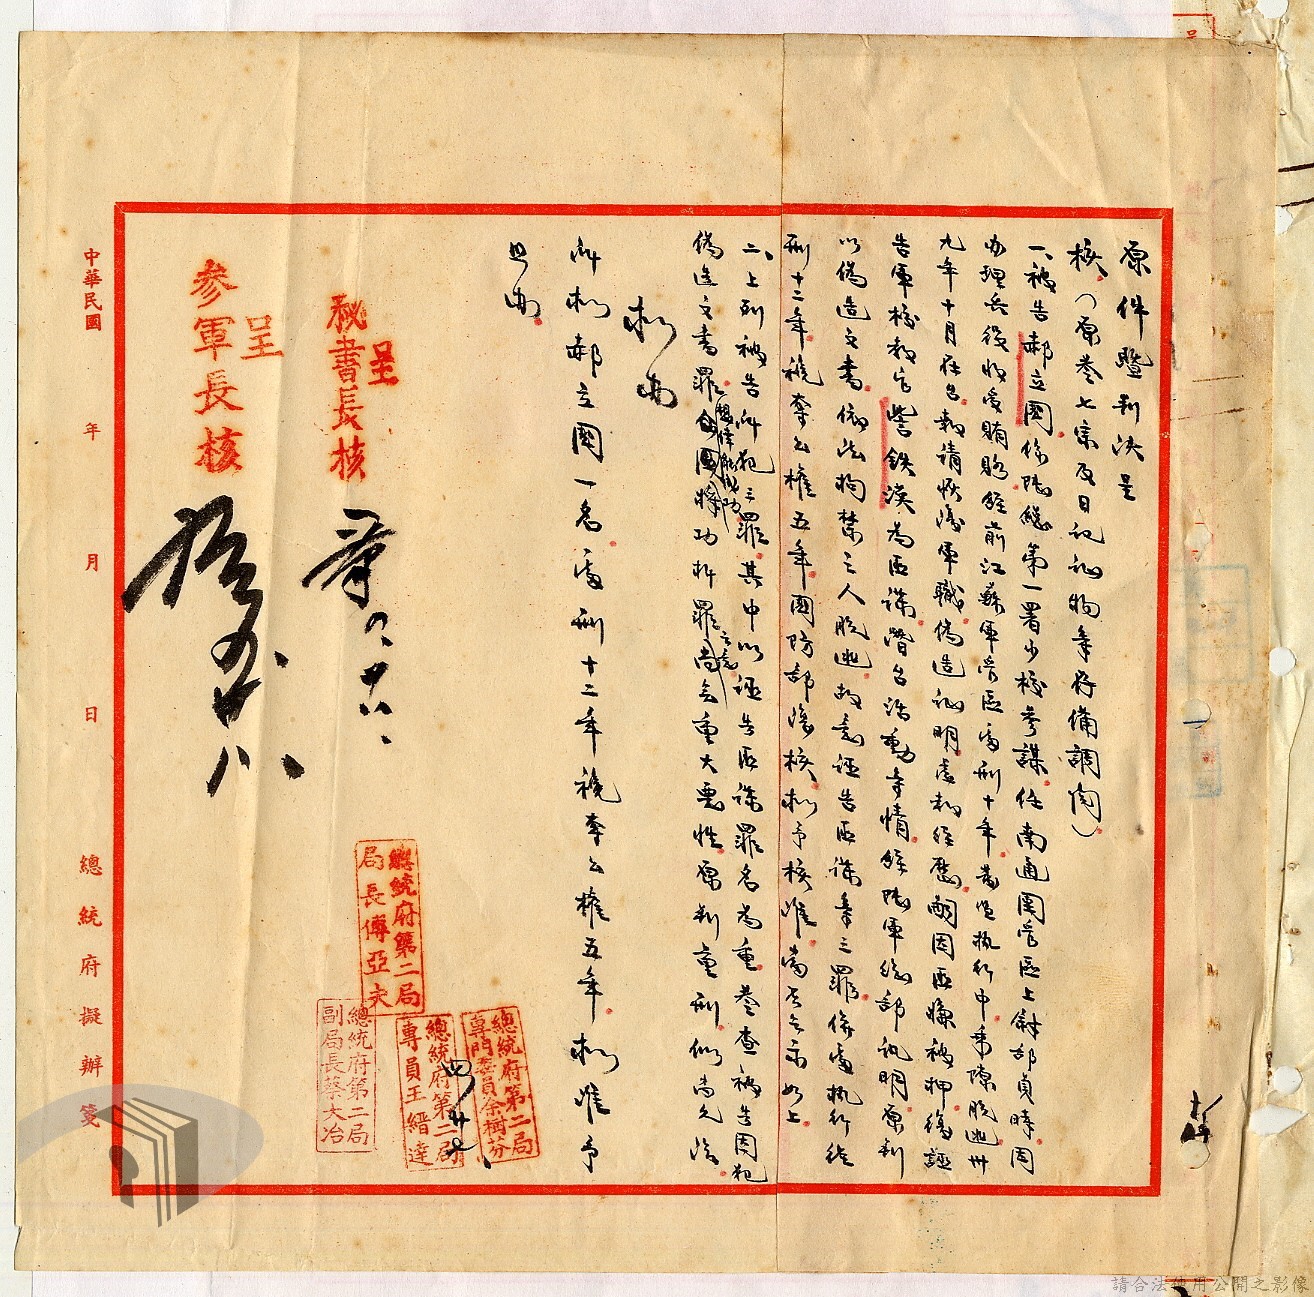 原件暨判決呈
核。(原卷七宗及日記証物等存備調閱)
一、被告郝立國係陸總第一署少校參謀。任南通團管區上尉部員時。因
辦理兵役收受賄賂。經前江蘇軍管區處刑十年。甫送執行中乘隙脫逃。卅
九年十月在台報請恢復軍職。偽造証明虛報經歷。嗣因匪嫌被押。復誣
告軍校教官訾鐵漢為匪諜潛台活動等情。經陸軍總部訊明。原判
以偽造文書。依法拘禁之人脫逃。故意誣告匪諜等三罪。併處執行徒
刑十二年。褫奪公權五年。國防部復核。擬予核准。當否乞示如上
二、上列被告所犯三罪。其中以誣告匪諜罪名為重。卷查被告因犯
偽造文書罪。圖將功折罪。尚無重大惡性。原判重刑。似尚允洽。
擬辦
所擬郝立國一名處刑十二年褫奪公權五年。擬准予
照辦。
呈
秘書長核
呈
參軍長核
中華民國 年 月 日 總統府擬辦箋
總統府第二局
局長傅亞夫
總統府第二局
副局長蔡大冶
總統府第二局
專員王縉達
總統府第二局
專門委員余樹芬
請合法使用公開之影像